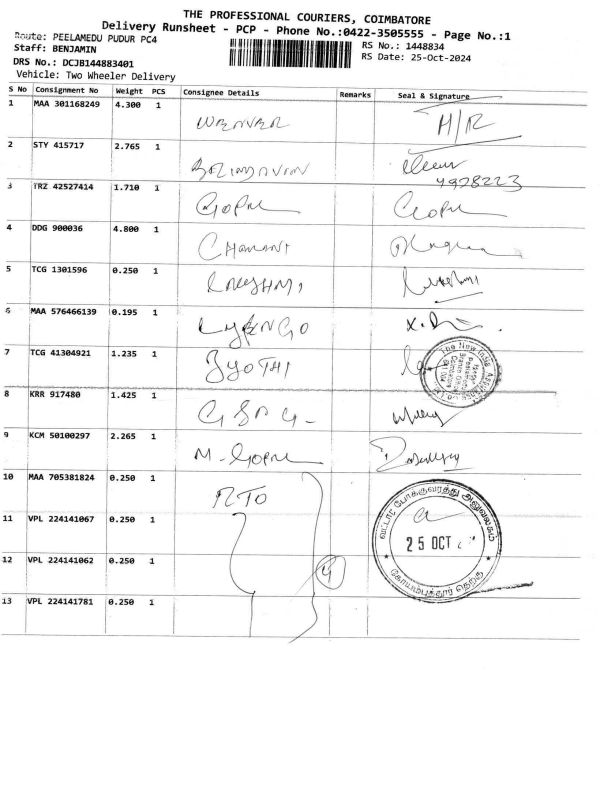 THE PROFESSIONAL COURIERS, COIMBATORE
Delivery Runsheet - PCP - Phone No.:0422-3505555 - Page No.:1
Route: PEELAMEDU PUDUR PC4
RS No.: 1448834
Staff: BENJAMIN
RS Date: 25-Oct-2024
DRS No.: DCJB144883401
Vehicle: Two Wheeler Delivery
S No Consignment No Weight PCS Consignee Details Remarks Seal & Signature
1 MAA 301168249 4.300 1 H/R
2 STY 415717 2.765 1
4978223
3 TRZ 42527414 1.710 1 GOPAL GOPAL
4 DDG 900036 4.800 1
5 TCG 1301596 0.250 1 LAKSHMI
6 MAA 576466139 0.195 1
7 TCG 41304921 1.235 1 JYOTHI
The New India Assurance
8 KRR 917480 1.425 1
9 KCM 50100297 2.265 1 M. GOPAL
10 MAA 705381824 0.250 1 RTO
வட்டார போக்குவரத்து அலுவலகம்
25 OCT
கோயம்புத்தூர் தெற்கு
11 VPL 224141067 0.250 1
12 VPL 224141062 0.250 1 4
13 VPL 224141781 0.250 1